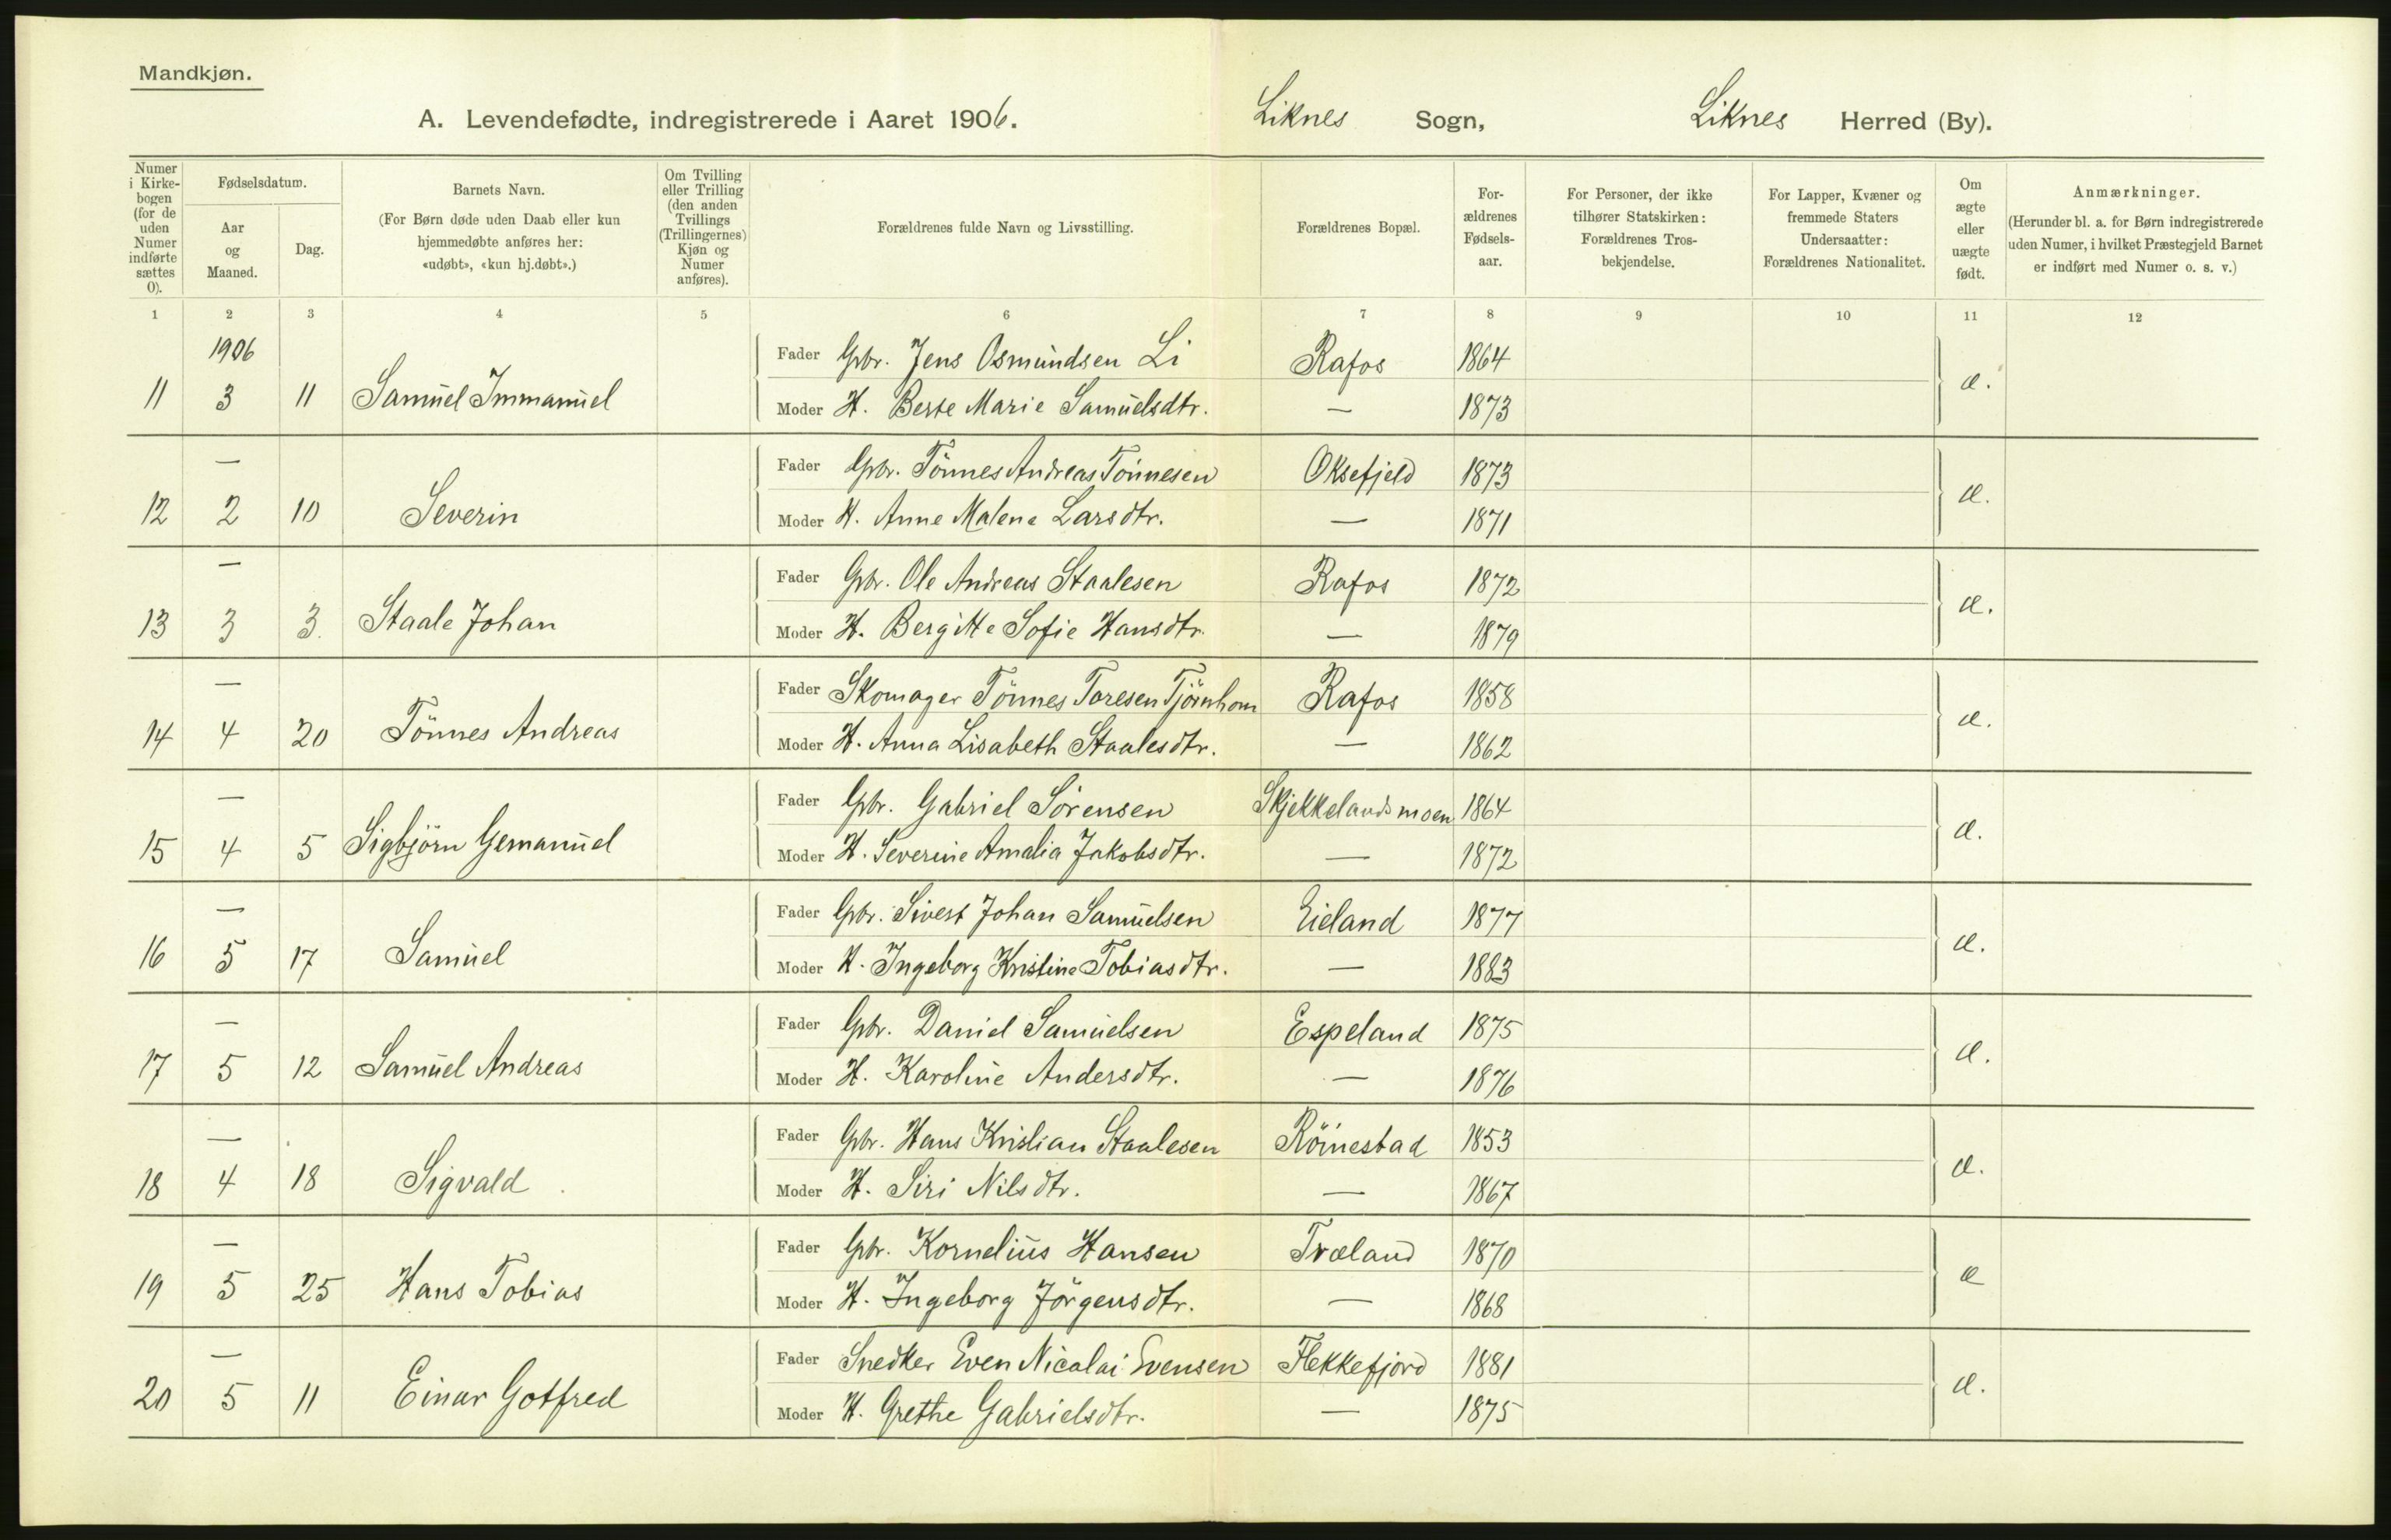 Mandkjøn.
A. Levendefødte, indregistrerede i Aaret 1906. Liknes Sogn, Liknes Herred (By).
Numer i Kirke-bogen (for de uden Numer indførte sættes 0).
Fødselsdatum.
Aar og Maaned.
Dag.
Barnets Navn.
(For Børn døde uden Daab eller kun
hjemmedøbte anføres her:
«udøbt», «kun hj.døbt».)
Om Tvilling
eller Trilling
(den anden
Tvillings
(Trillingernes)
Kjøn og
Numer
anføres).
Forældrenes fulde Navn og Livsstilling.
Forældrenes Bopæl.
For-
ældrenes
Fødsels-
aar.
For Personer, der ikke
tilhører Statskirken:
Forældrenes Tros-
bekjendelse.
For Lapper, Kvæner og
fremmede Staters
Undersaatter:
Forældrenes Nationalitet.
Om
ægte
eller
uægte
født.
Anmærkninger.
(Herunder bl. a. for Børn indregistrerede
uden Numer, i hvilket Præstegjeld Barnet
er indført med Numer o. s. v.)
1 2 3 4 5 6 7 8 9 10 11 12
1906 Fader Gbr. Jens Osmundsen Li Rafos 1864
11 3 11 Samuel Immanuel Moder H. Berte Marie Samuelsdtr. — 1873 æ.
— Fader Gbr. Tönnes Andreas Tönnesen Oksefjeld 1873
12 2 10 Severin Moder H. Anne Malene Larsdtr. — 1871 æ.
— Fader Gbr. Ole Andreas Staalesen Rafos 1872
13 3 3. Staale Johan Moder H. Bergitte Sofie Hansdtr. — 1879 æ.
— Fader Skomager Tönnes Toresen Tjörnhom Rafos 1858
14 4 20 Tönnes Andreas Moder H. Anna Lisabeth Staalesdtr. — 1862 æ.
— Fader Gbr. Gabriel Sörensen Skjekkelandsmoen 1864
15 4 5 Sigbjörn Gemanuel Moder H. Severine Amalia Jakobsdtr. — 1872 æ.
— Fader Gbr. Sivert Johan Samuelsen Eieland 1877
16 5 17 Samuel Moder H. Ingeborg Kristine Tobiasdtr. — 1883 æ.
— Fader Gbr. Daniel Samuelsen Espeland 1875
17 5 12 Samuel Andreas Moder H. Karoline Andersdtr. — 1876 æ.
— Fader Gbr. Hans Kristian Staalesen Röinestad 1853
18 4 18 Sigvald Moder H. Siri Nilsdtr. — 1867 æ.
— Fader Gbr. Kornelius Hansen Træland 1870
19 5 25 Hans Tobias Moder H. Ingeborg Jörgensdtr. — 1868 æ
— Fader Snedker Even Nicolai Evensen Flekkefjord 1881
20 5 11 Einar Gotfred Moder H. Grethe Gabrielsdtr. — 1875 æ.